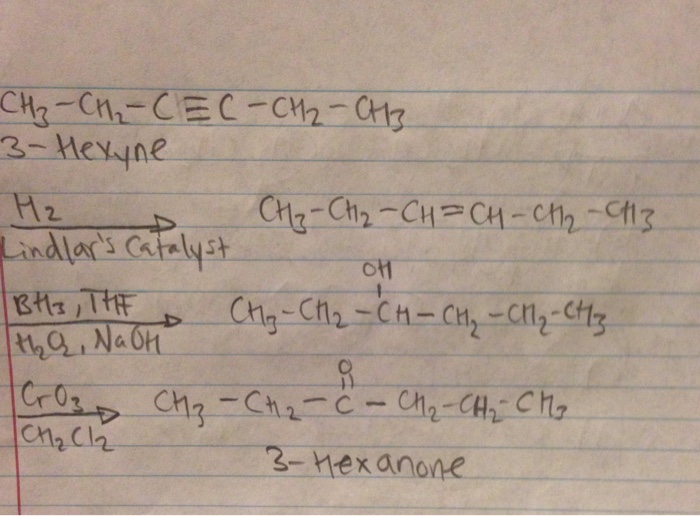 CH₃-CH₂-C≡C-CH₂-CH₃
3-Hexyne
H₂
Lindlar's Catalyst
CH₃-CH₂-CH=CH-CH₂-CH₃
BH₃, THF
H₂O₂, NaOH
OH
CH₃-CH₂-CH-CH₂-CH₂-CH₃
CrO₃
CH₂Cl₂
O
CH₃-CH₂-C-CH₂-CH₂-CH₃
3-Hexanone